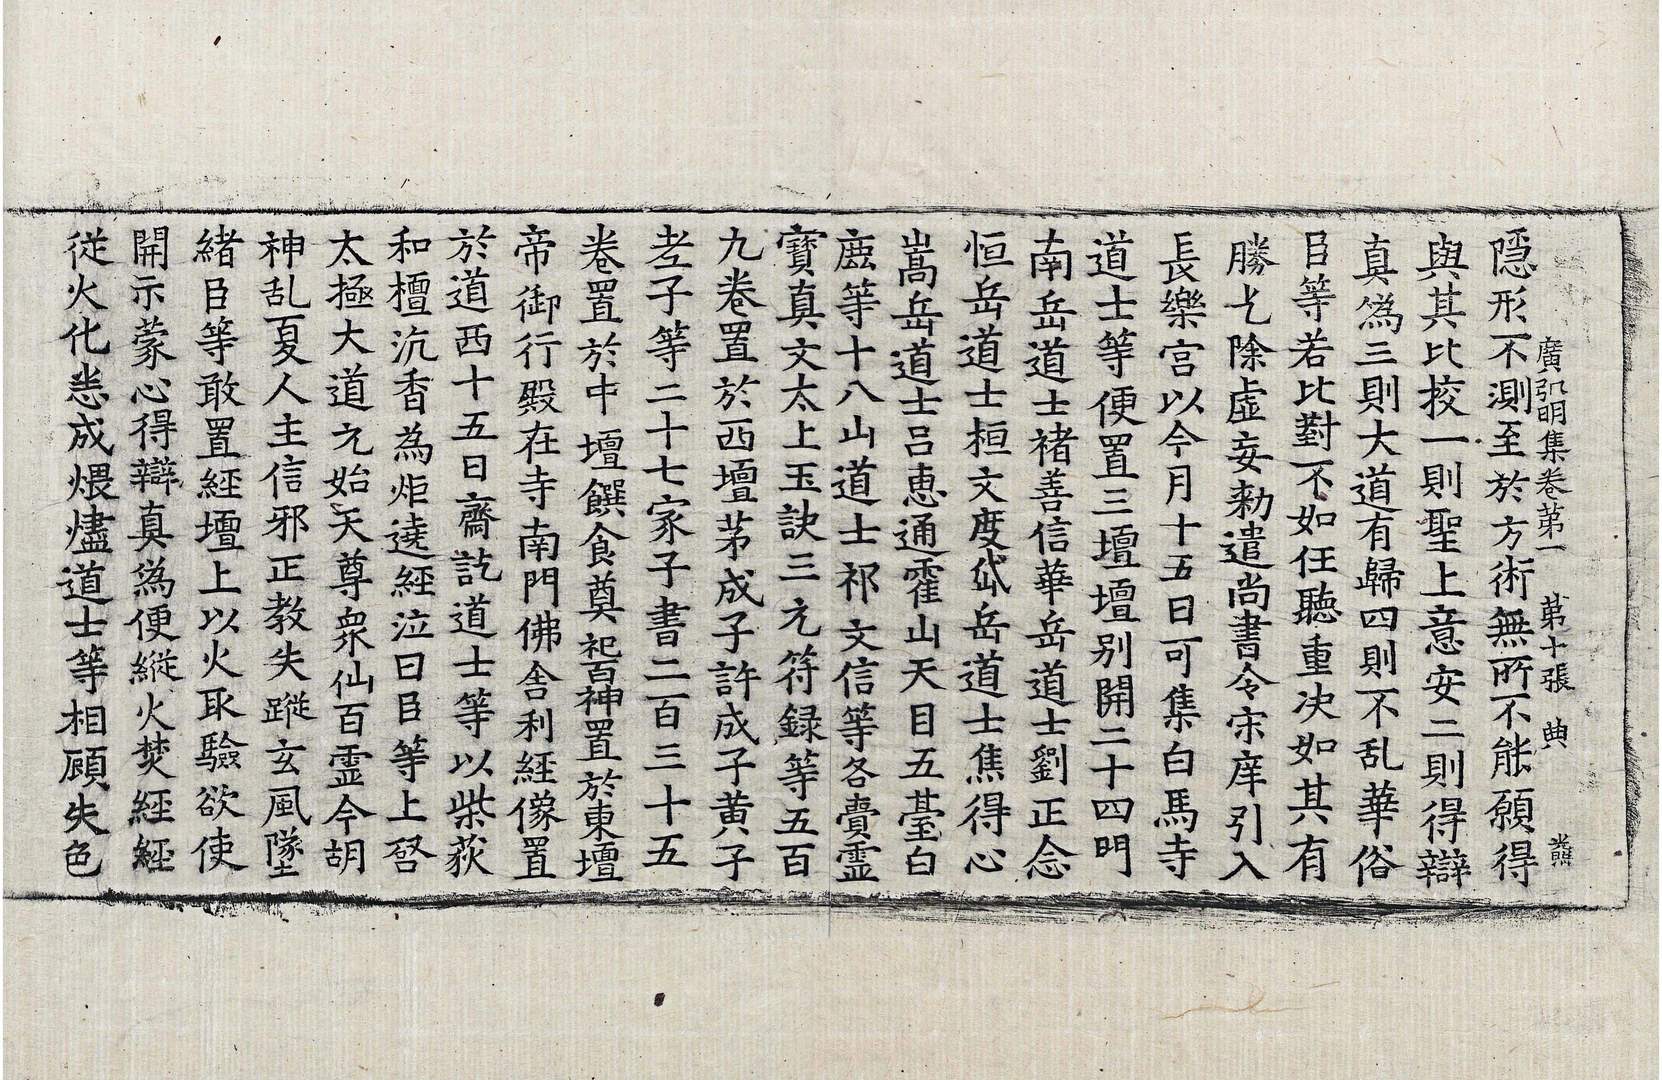 廣弘明集卷第一 第十張 典
隱形不測至於方術無所不能願得
與其比挍一則聖上意安二則得辯
真爲三則大道有歸四則不乱華俗
臣等若比對不如任聽重决如其有
勝乞除虛妄勑遣尚書令宋庠引入
長樂宫以今月十五日可集白馬寺
道士等便置三壇壇別開二十四門
南岳道士褚善信華岳道士劉正念
恒岳道士桓文度岱岳道士焦得心
嵩岳道士吕恵通霍山天目五䑓白
鹿等十八山道士祁文信等各賫靈
寳真文太上玉訣三元符録等五百
九卷置於西壇茅成子許成子黄子
老子等二十七家子書二百三十五
卷置於中壇饌食奠祀百神置於東壇
帝御行殿在寺南門佛舎利經像置
於道西十五日齋訖道士等以柴荻
和檀沉香為炬遶經泣曰臣等上啓
太極大道元始天尊衆仙百霊今胡
神乱夏人主信邪正教失蹤玄風墜
緒臣等敢置經壇上以火取驗欲使
開示蒙心得辯真爲便縱火焚經經
從火化悉成煨燼道士等相顧失色